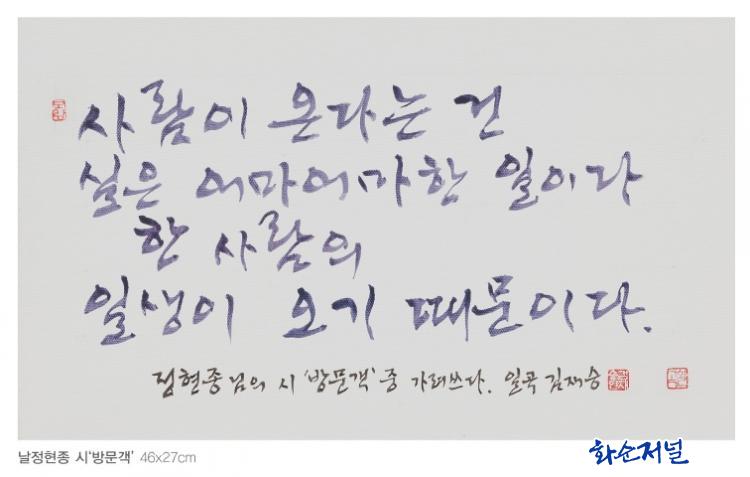 사람이 온다는 건
실은 어마어마한 일이다
한 사람의
일생이 오기 때문이다.
정현종님의 시 '방문객' 중 가려쓰다. 일곡 김재승
날정현종 시'방문객' 46x27cm
화순저널